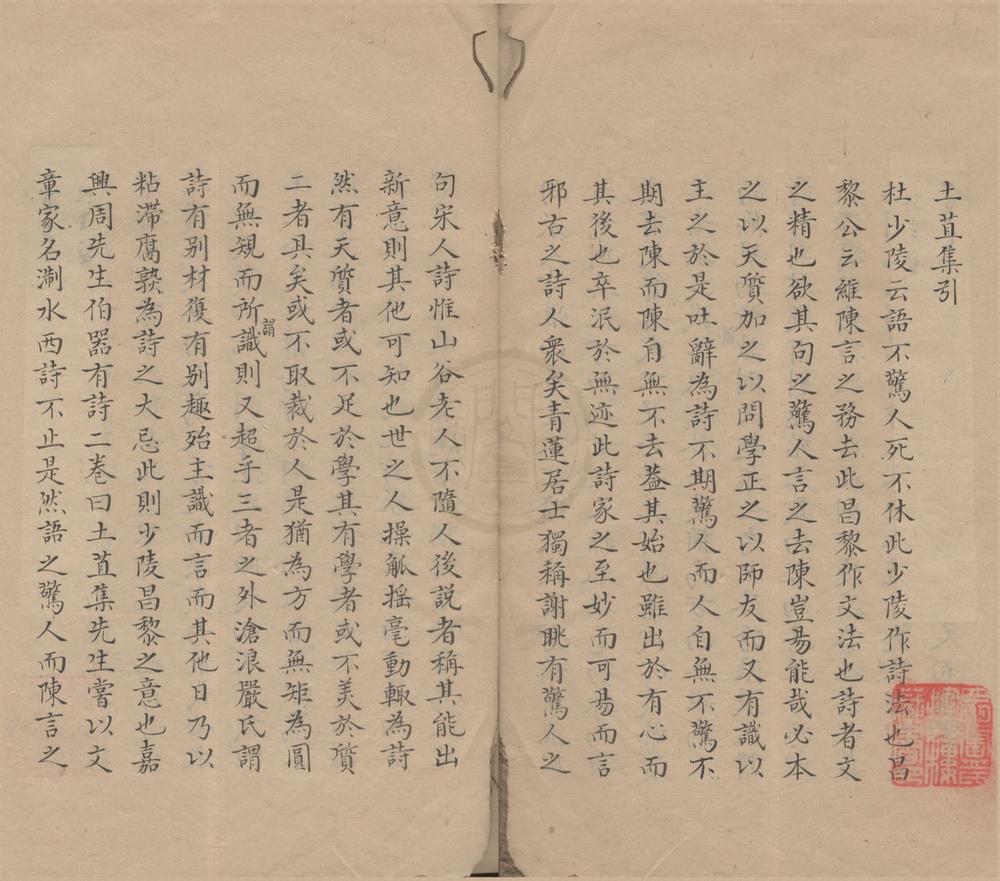 土苴集引
杜少陵云語不驚人死不休此少陵作詩法也昌
黎公云維陳言之務去此昌黎作文法也詩者文
之精也欲其句之驚人言之去陳豈易能哉必本
之以天質加之以問學正之以師友而又有識以
主之於是吐辭為詩不期驚人而人自無不驚不
期去陳而陳自無不去葢其始也雖出於有心而
其後也卒泯於無迹此詩家之至妙而可易而言
邪古之詩人衆矣青蓮居士獨稱謝眺有驚人之
句宋人詩惟山谷老人不隨人後説者稱其能出
新意則其他可知也世之人操觚揺毫動輙為詩
然有天質者或不足於學其有學者或不美於質
二者具矣或不取裁於人是猶為方而無矩為圓
而無規而所謂識則又超乎三者之外滄浪嚴氏謂
詩有别材復有别趣殆主識而言而其他日乃以
粘滯腐熟為詩之大忌此則少陵昌黎之意也嘉
興周先生伯器有詩二巻曰土苴集先生嘗以文
章家名淛水西詩不止是然語之驚人而陳言之